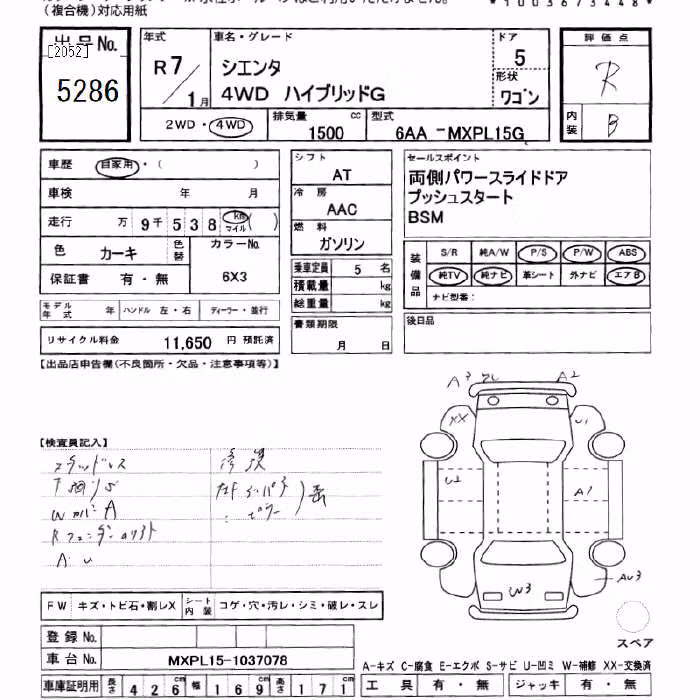 (複合機)対応用紙
*1003673448*
出品No. [2052] 5286
年式 R7/1月
車名・グレード シエンタ 4WD ハイブリッドG
ドア 5
形状 ワゴン
評価点 R
内装 B
2WD・4WD
排気量 1500 cc
型式 6AA-MXPL15G
車歴 自家用・( )
車検 年 月
走行 万 9千538 km マイル ( )
色 カーキ 色替 カラーNo. 6X3
保証書 有・無
シフト AT
冷房 AAC
燃料 ガソリン
乗車定員 5 名
積載量 kg
総重量 kg
書類期限 月 日
セールスポイント
両側パワースライドドア
プッシュスタート
BSM
装備品 S/R 純A/W P/S P/W ABS
純TV 純ナビ 革シート 外ナビ エアB
ナビ型番:
モデル年式 年 ハンドル 左・右 ディーラー・並行
後日品
リサイクル料金 11,650 円 預託済
【出品店申告欄(不良箇所・欠品・注意事項等)】
A2
XX U1
【検査員記入】
U2 A1
W3 AU3
FW キズ・トビ石・割レX シート内装 コゲ・穴・汚レ・シミ・破レ・スレ
スペア
登録No.
車台No. MXPL15-1037078
A-キズ C-腐食 E-エクボ S-サビ U-凹ミ W-補修 XX-交換済
車庫証明用 長さ 426cm 幅 169cm 高さ 171
工具 有・無 ジャッキ 有・無